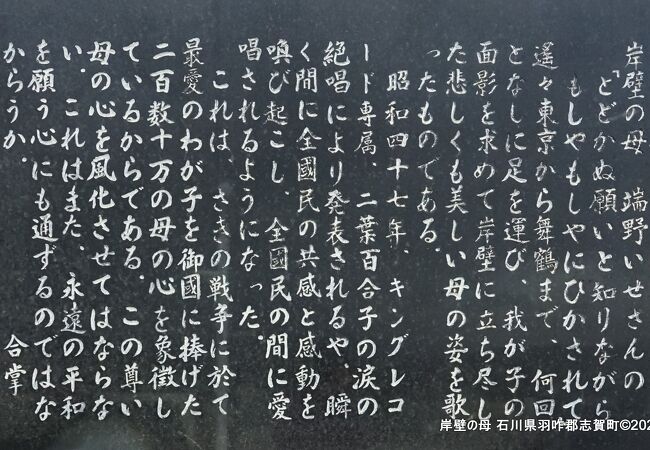 岸壁の母 端野いせさんの
「とどかぬ願いと知りながら
もしやもしやにひかされて」
遙々東京から舞鶴まで、何回
となしに足を運び、我が子の
面影を求めて岸壁に立ち尽し
た悲しくも美しい母の姿を歌
ったものである。
昭和四十七年、キングレコ
ード専属、二葉百合子の涙の
絶唱により発表されるや、瞬
く間に全國民の共感と感動を
喚び起こし、全國民の間に愛
唱されるようになった。
これは、さきの戦争に於て
最愛のわが子を御國に捧げた
二百数十万の母の心を象徴し
ているからである。この尊い
母の心を風化させてはならな
い。これはまた、永遠の平和
を願う心にも通ずるのではな
からうか。
合掌
岸壁の母 石川県羽咋郡志賀町©202